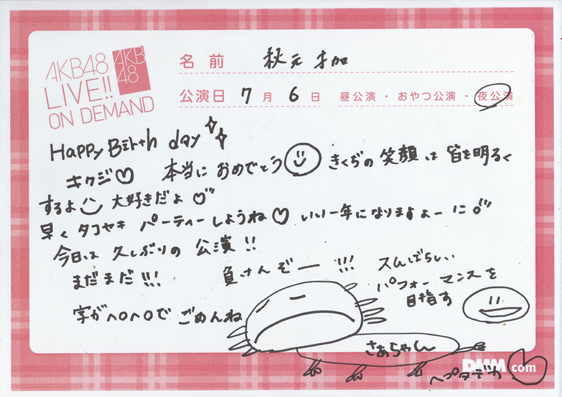 AKB48
LIVE!!
ON DEMAND
AKB
48
名前 秋元才加
公演日 7月6日 昼公演・おやつ公演・夜公演
Happy Birth day
キクジ♡ 本当におめでとう きくぢの笑顔は皆を明るく
するよ 大好きだよ
早くタコヤキパーティーしようね♡ いい一年になりますよーに
今日は久しぶりの公演!!
まだまだ!!! 負けんぞー!!! スんばらしい
パフォーマンスを
目指す
字がヘロヘロでごめんね
さあちゃん
DMM.com